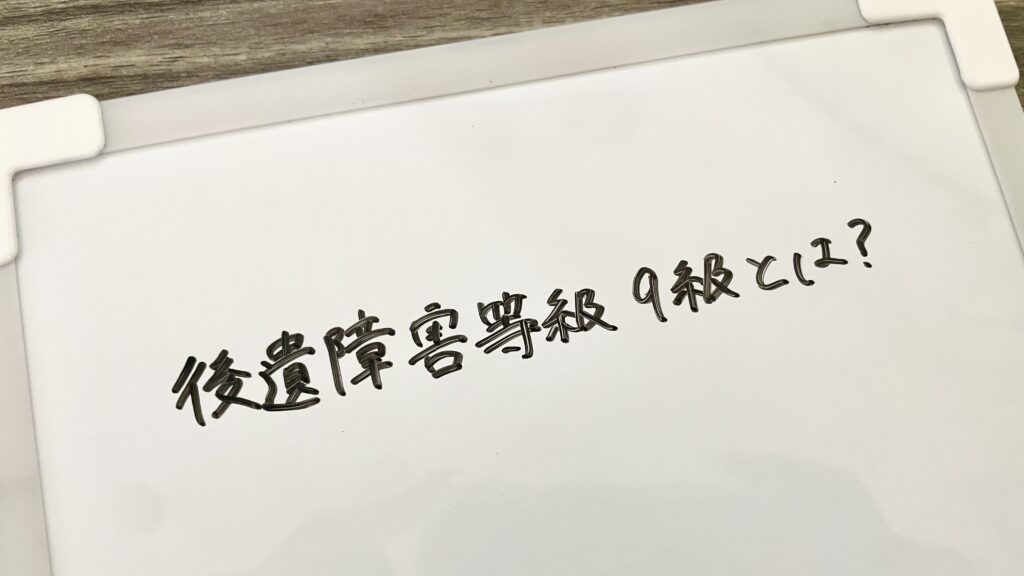 後遺障害等級 9級とは?